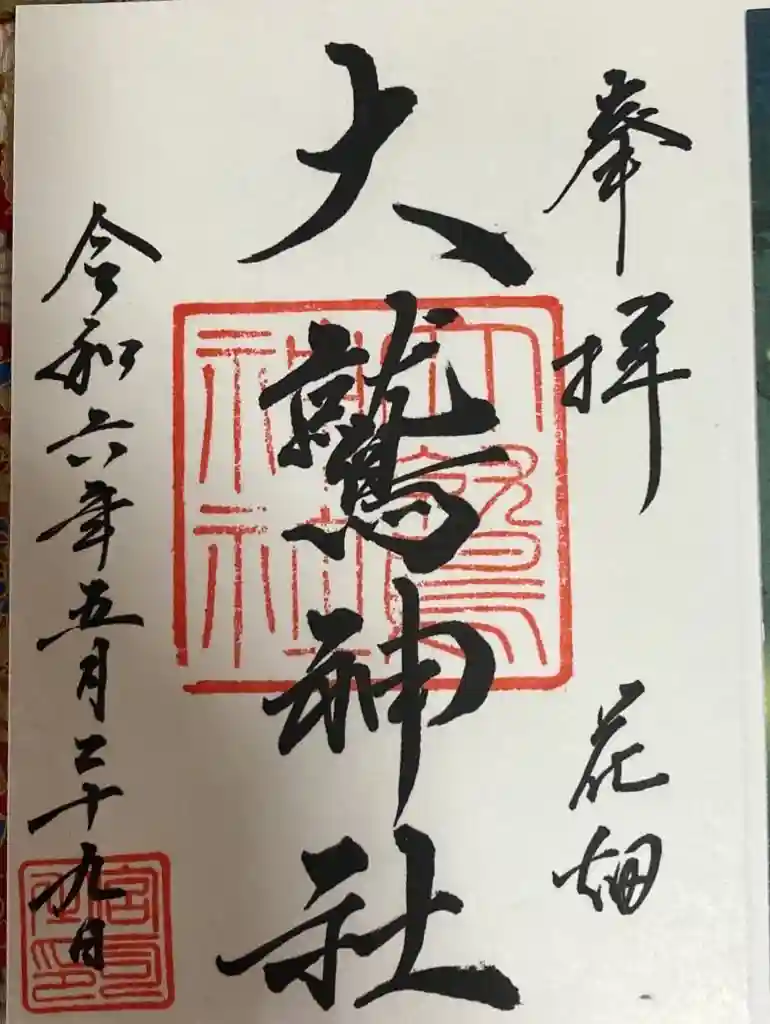 奉拝
花畑
大鷲神社
令和六年五月二十九日